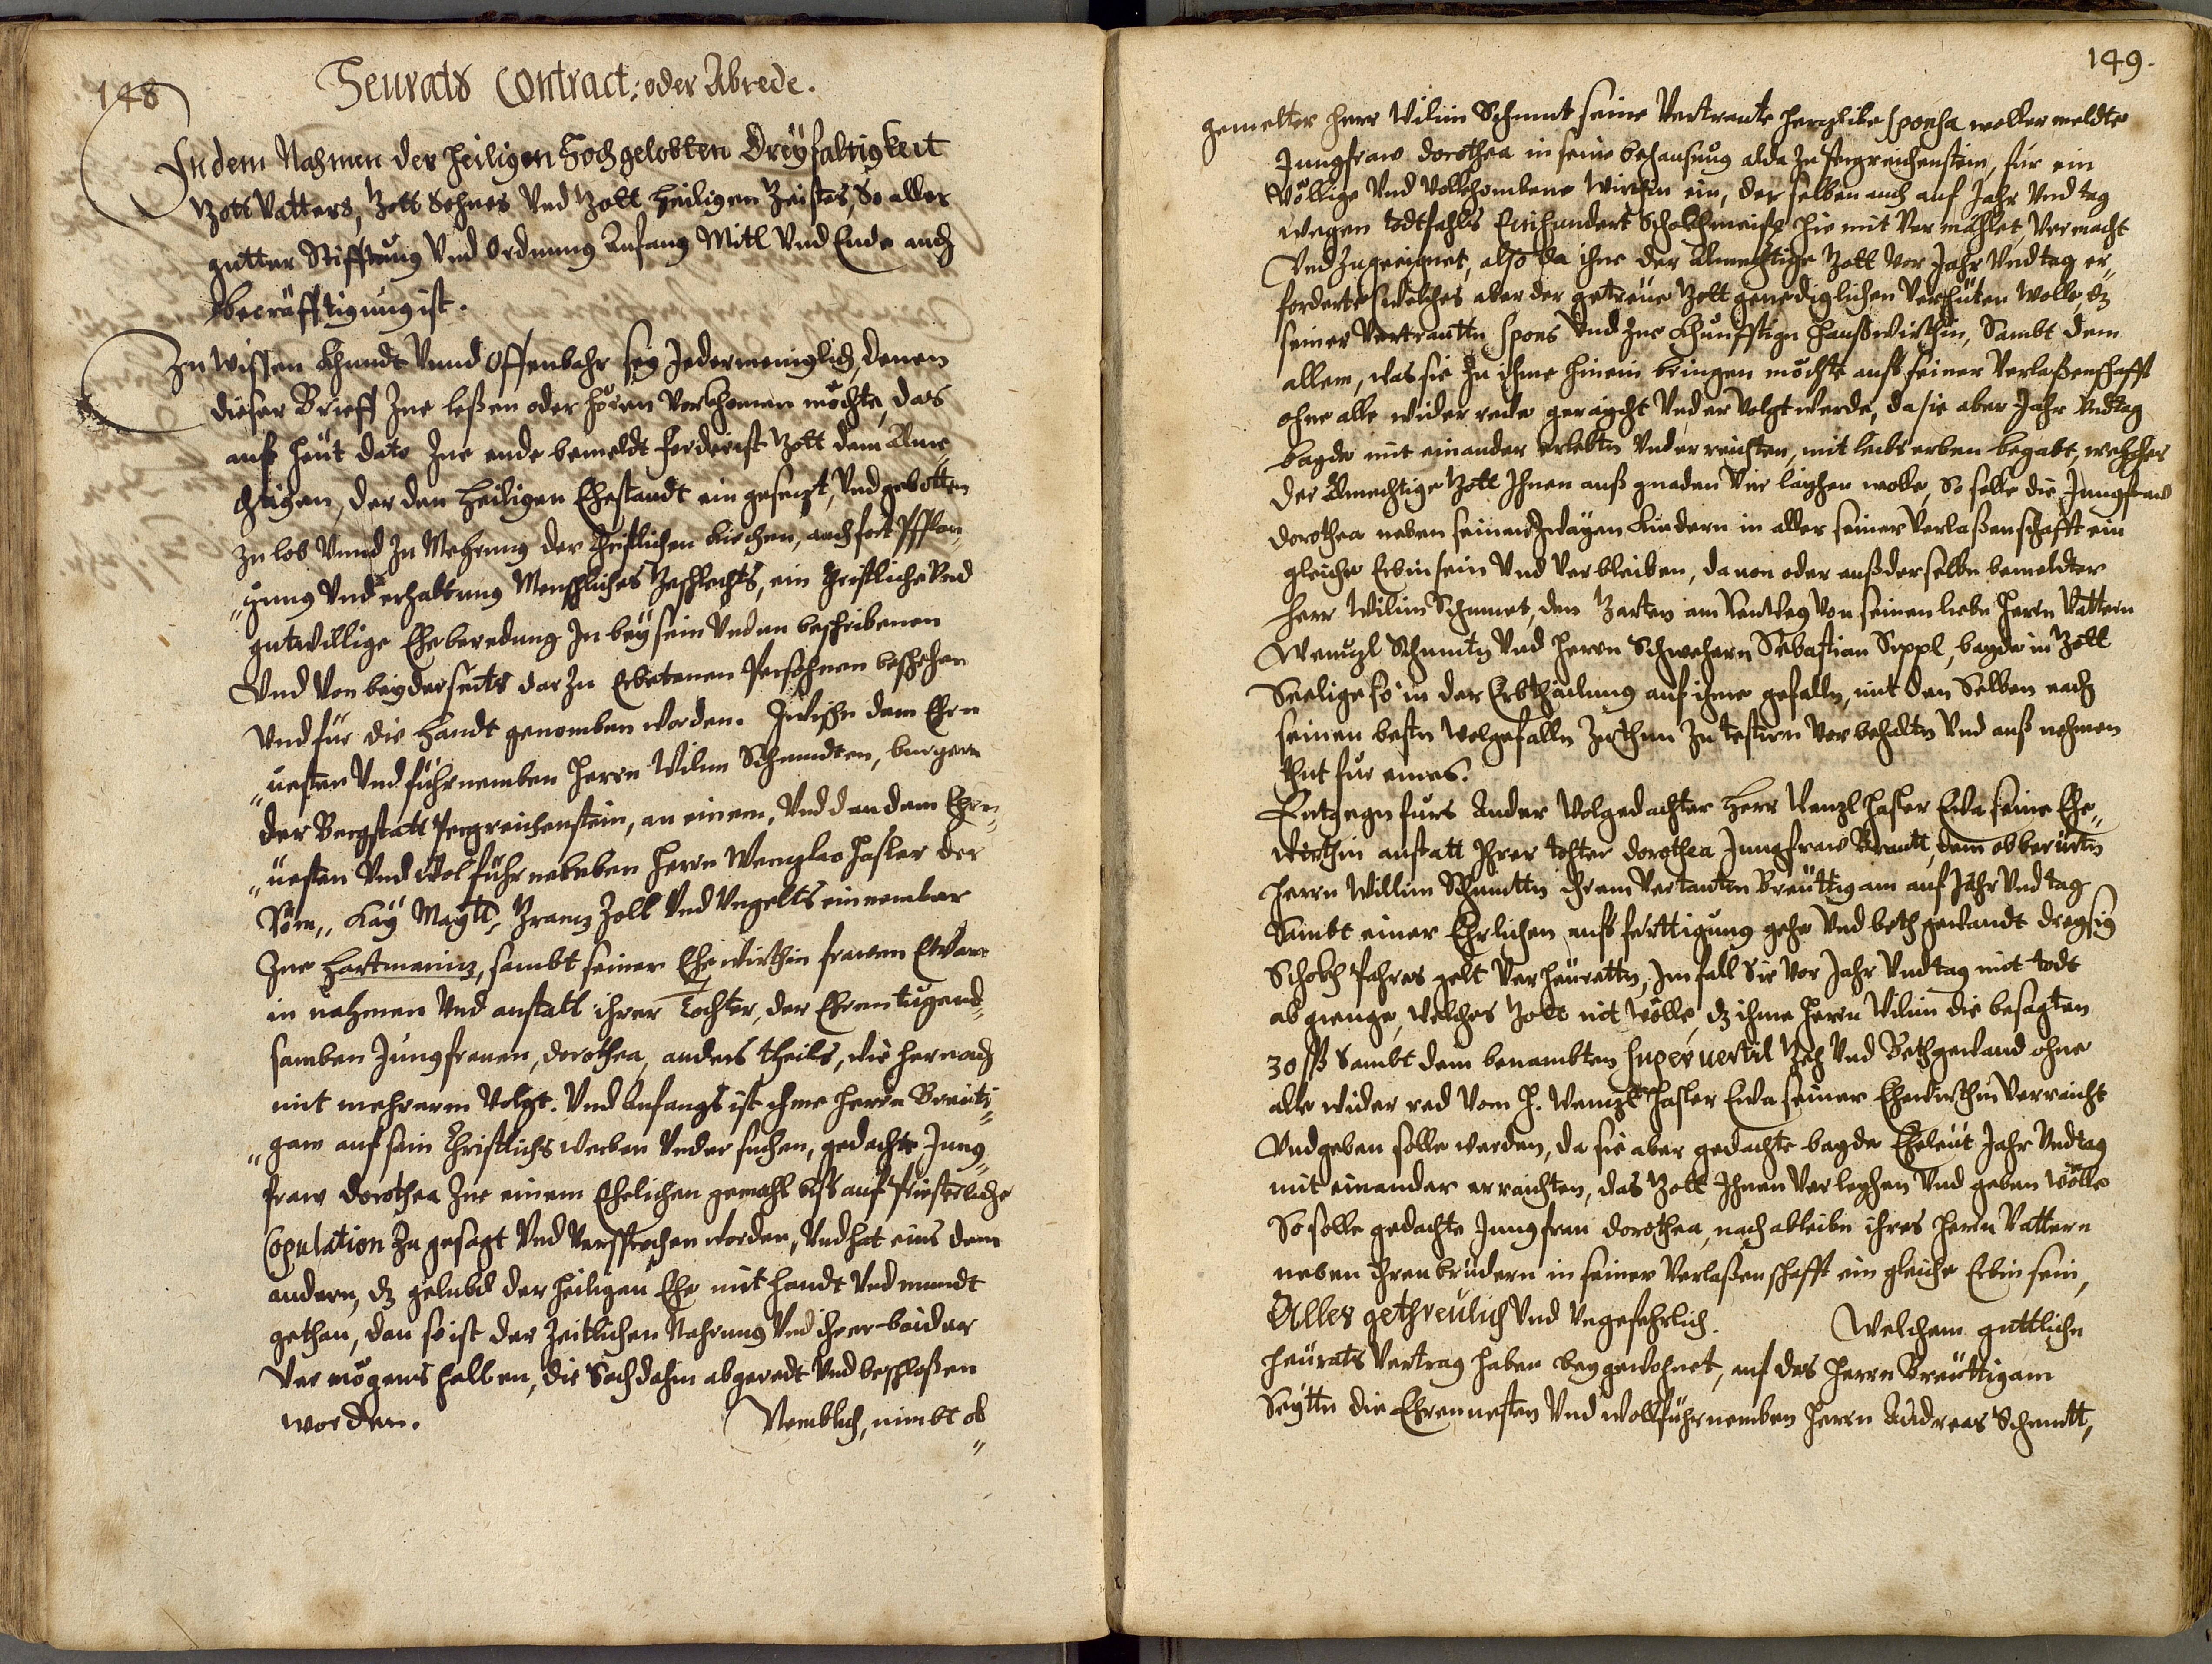 148
Heurats Contract: oder Abrede.
In dem Nahmen der heiligen Hochgelobten Dreyfaltigkeit
Gott Vatters, Gott Sohnes Vnd Gott heiligen Geistes, So aller
gutter Stifftung Vnd Ordnung Anfang Mitl Vnd Ende auch
becräfftigung ist.
Zu wissen Khundt Vnnd Offenbahr sey Jedermeniglich, denen
dieser Brieff Zue leßen oder hören Vorkhomen möchte, das
auß heüt dato Zue ende bemeldt forderist Gott dem Alme
chtigen, der den Heiligen Ehestandt ein gesezt, Vnd gebotten
Zu lob Vnnd Zu Mehrung der Christlichen Kirchen, auch fort Pfflan„
„zung Vnd erhaltung Menschliches Geschlechts, ein Christliche Vnd
gutwillige Eheberedung In beÿ sein Vnden beschribenen
Vnd Von beÿderseits dar Zu Erbetenen Persohnen beschehen
Vnd für die Handt genomben worden. Zwischn dem Ehrn
„uesten Vnd führnemben Herrn Wilm Schmidten, burgern
der Bergstatt Pergreichenstein, an einem, Vnd dan dem Ehrn„
„uesten Vnd Wol führnehmben Herrn Wenzlao Hasler der
Röm„ Kaÿ Maÿtt, Granz Zoll Vnd Vngelts einnember
Zue Hartmaniz, sambt seiner Ehewirthin frawen Evae
in nahmen Vnd anstatt ihrer Tochter, der Ehrentugend„
samben Jungfrauen, Dorothea, anders theils, wie hernach
mit mehrerem Volgt. Vnd Anfangs ist ihme Herrn Breüti„
„gam auf sein Christlichs werben Vnd ersuchen, gedachte Jung„
fraw Dorothea Zue einem Ehelichen gemahl biß auf Priesterliche
Copulation Zu gesagt Vnd Versprochen worden, Vnd hat eins dem
andern, dz gelübd der heiligen Ehe mit Handt Vnd mundt
gethan, dan so ist der Zeitlichen Nahrung Vnd ihrer beider
Vermögens halben, die Sach dahin abgeredt Vnd beschloßen
worden. Nemblich, nimbt ob„
149.
gemelter Herr Wilim Schmit seine Vertraute herzliebe Sponsa wollermeldte
Jungfraw Dorothea in seine behausung alda Zu Pergreichenstein, für ein
Völlige Vnd Vollkhombene Wirthin ein, derselben auch auf Jahr Vnd tag
wegen todtfahls Einhundert Schokh meiß hie mit Vermählet, Vermacht
Vnd Zugeeignet, also da ihne der Almechtige Gott Vor Jahr Vnd tag er„
forderte welches aber der getreüe Gott genediglichen Verhüten Wolle dz
seiner Vertrautn Spons Vnd Zue Khünfftign Haußwirthin, Sambt dem
allem, was sie Zu ihme hinein bringen möchte auß seiner Verlaßenschafft
ohne alle wider rede geraicht Vnd ervolgt werde, da sie aber Jahr Vnd tag
bayde mit einander erlebtn Vnd erreichten, mit leibs erben begabt, welches
der Almechtige Gott Ihnen auß gnaden Verlaÿhen wolle, So solle die Jungfraw
Dorothea neben seinen Zwayen Kindern in aller seiner Verlaßenschafft ein
gleiche Erbin sein Vnd Verbleiben, dauon oder auß derselbn bemeldter
Herr Wilim Schmit, den Garten am Von seinen liebn Herrn Vattern
Wenzl Schmitn Vnd Herrn Schwehern Sebastian Seppl, bayde in Gott
Seelige so in der Erbthailung auf ihme gefalln, mit den Selben nach
seinen bestn Wolgefalln Zuthun Zu testirn Vorbehaltn Vnd auß nehmen
thut für eines.
Entgegn fürs Ander Wolgedachter Herr Wenzl Hasler Eva seine Ehe„
wirthin anstatt Ihrer tohter Dorothea Jungfraw Braut, dem obberürtn
Herrn Willim Schmittn ihrem Vertrauten Breüttigam auf Jahr Vnd tag
Sambt einer Ehrlichen auß förttigung gehe Vnd bethgewandt dreysig
Schokh Pahres gelt Verheürattn, Im fall Sie Vor Jahr Vnd tag mit todt
abgienge, welches Gott nit wölle, dz ihme Herrn Wilim die besagten
30 ß Sambt dem benambten Superuectil Geh Vnd Bethgewand ohne
alle wider red Vom H. Wenzl Hasler Eva seiner Ehewirthin Verraicht
Vnd geben solle werden, da sie aber gedachte bayde Eheleüt Jahr Vnd tag
mit einander erraichten, das Gott Ihnen Verleyhen Vnd geben wölle
So solle gedachte Jungfrau Dorothea, nach ableibn ihres Herrn Vattern
neben ihren brüdern in seiner Verlaßenschafft ein gleiche Erbin sein,
Alles gethreülich Vnd Vngefehrlich. Welchem güttlichn
Heürats Vertrag haben beygewohnet, auf des Herrn Breüttigam
Seÿttn die Ehrnuesten Vnd Wollführnemben Herrn Andreas Schmitt,